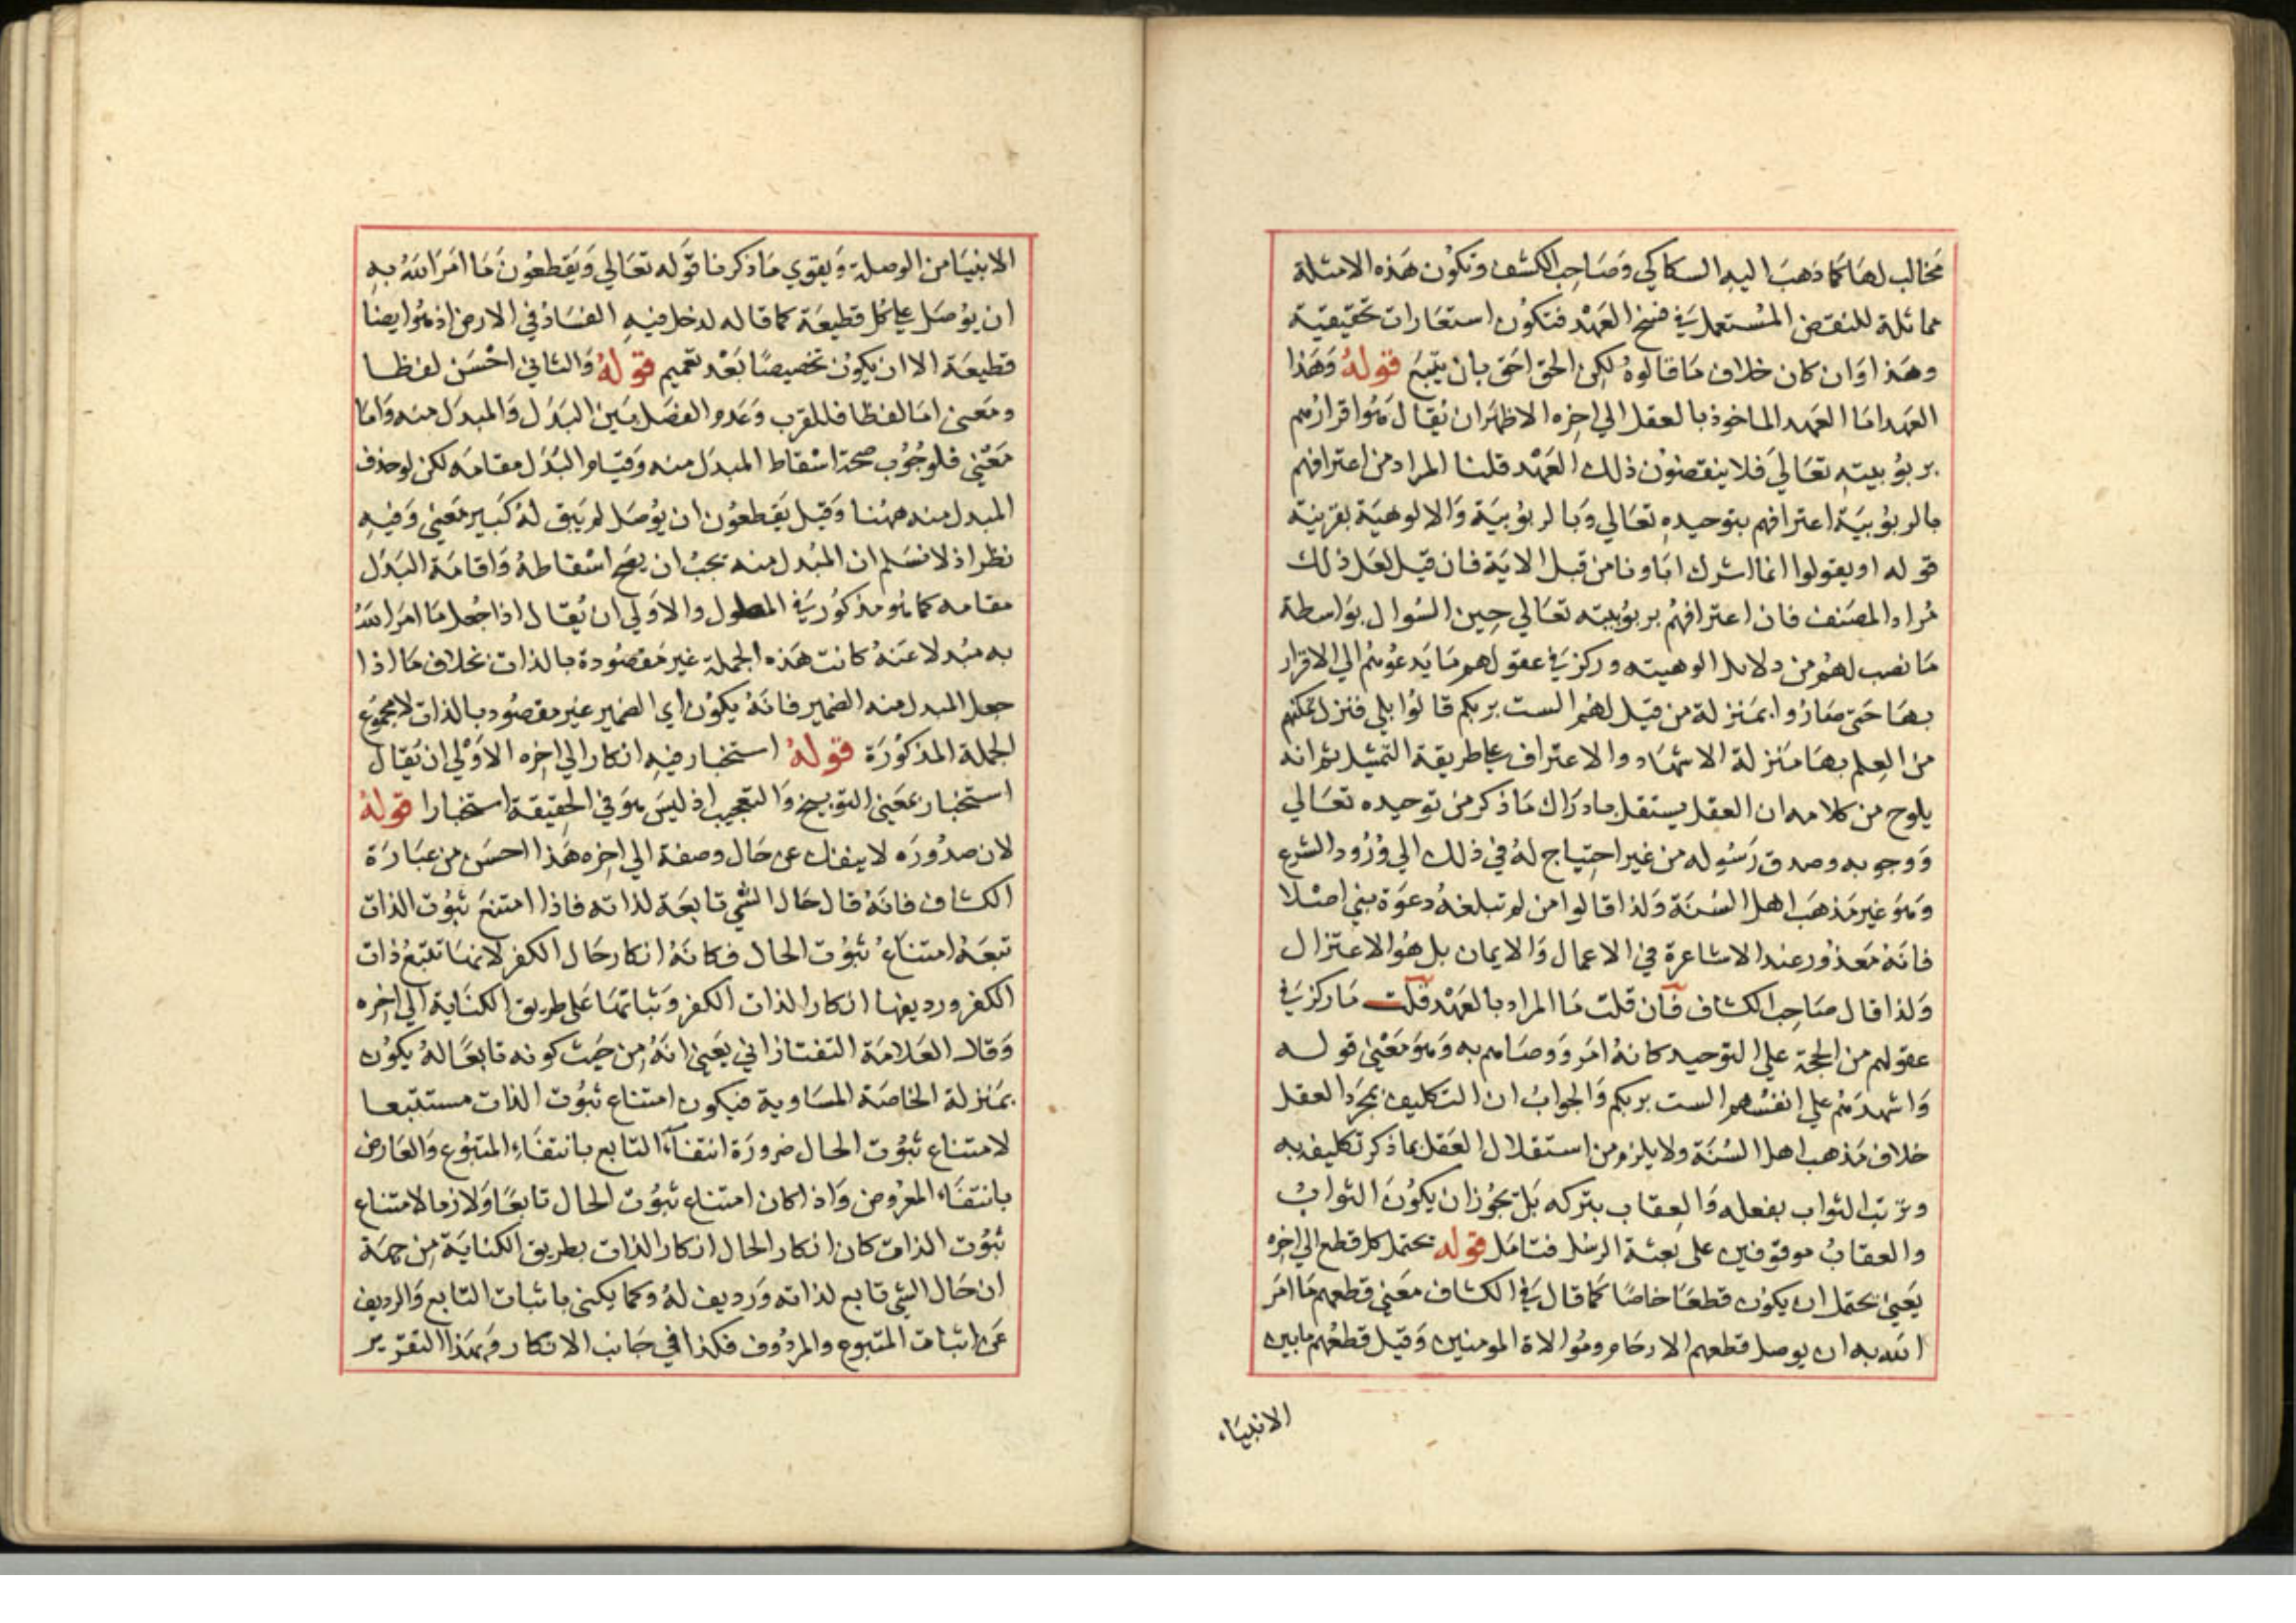 مخالب لها كما ذهب اليه السكاكي وصاحب الكشف وتكون هذه الامثلة
مماثلة للنقض المستعمل في فسخ العهد فتكون استعارات تحقيقية
وهذا وان كان خلاف ما قالوه لكن الحق احق بان يتبع قوله وهذا
العهد اما العهد الماخوذ بالعقل الي اخره الاظهر ان يقال هو اقرارهم
بربوبيته تعالي فلا ينقضون ذلك العهد قلنا المراد من اعترافهم
بالربوبية اعترافهم بتوحيده تعالي وبالربوبية والالوهية بقرينة
قوله او يقولوا انما اشرك اباونا من قبل الاية فان قيل لعل ذلك
مراد المصنف فان اعترافهم بربوبيته تعالي حين السوال بواسطة
ما نصب لهم من دلايل الوهيته وركز في عقولهم ما يدعوهم الي الاقرار
بها حتي صاروا بمنزلة من قيل لهم الست بربكم قالوا بلي فنزل تمكنهم
من العلم بها منزلة الاشهاد والاعتراف علي طريقة التمثيل ثم انه
يلوح من كلامه ان العقل يستقل بادراك ما ذكر من توحيده تعالي
ووجوبه وصدق رسوله من غير احتياج له في ذلك الي ورود الشرع
وهو غير مذهب اهل السنة ولذا قالوا من لم تبلغه دعوة نبي اصلا
فانه معذور عند الاشاعرة في الاعمال والايمان بل هو الاعتزال
ولذا قال صاحب الكشاف فان قلت ما المراد بالعهد قلت ما ركز في
عقولهم من الحجة علي التوحيد كانه امر ووصاهم به وهو معني قوله
واشهدهم علي انفسهم الست بربكم والجواب ان التكليف بمجرد العقل
خلاف مذهب اهل السنة ولا يلزم من استقلال العقل بما ذكر تكليفه به
وترتب الثواب بفعله والعقاب بتركه بل يجوز ان يكون الثواب
والعقاب موقوفين علي بعثة الرسل فتامل قوله يحتمل كل قطع الي اخره
يعني يحتمل ان يكون قطعا خاصا كما قال في الكشاف معني قطعهم ما امر
الله به ان يوصل قطعهم الارحام وموالاة المومنين وقيل قطعهم ما بين
الانبياء
الانبيا من الوصلة ويقوي ما ذكرنا قوله تعالي ويقطعون ما امر الله به
ان يوصل علي كل قطيعة كما قاله لدخل فيه الفساد في الارض اذ هو ايضا
قطيعة الا ان يكون تخصيصا بعد تعميم قوله والثاني احسن لفظا
ومعني اما لفظا فللقرب وعدم الفصل بين البدل والمبدل منه واما
معني فلوجوب صحة اسقاط المبدل منه وقيام البدل مقامه لكن لو حذف
المبدل منه ههنا وقيل يقطعون ان يوصل لم يبق له كبير معني وفيه
نظر اذ لا نسلم ان المبدل منه يجب ان يصح اسقاطه واقامة البدل
مقامه كما هو مذكور في المطول والاولي ان يقال اذا جعل ما امر الله
به مبدلا عنه كانت هذه الجملة غير مقصودة بالذات بخلاف ما اذا
جعل المبدل منه الضمير فانه يكون اي الضمير غير مقصود بالذات لا مجموع
الجملة المذكورة قوله استخبار فيه انكار الي اخره الاولي ان يقال
استخبار بمعني التوبيخ والتعجيب اذ ليس هو في الحقيقة استخبارا قوله
لان صدوره لا ينفك عن حال وصفة الي اخره هذا احسن من عبارة
الكشاف فانه قال حال الشي تابعة لذاته فاذا امتنع ثبوت الذات
تبعه امتناع ثبوت الحال فكانه انكار حال الكفر لانها تتبع ذات
الكفر ورديفها انكار الذات الكفر وثباتها علي طريق الكناية الي اخره
وقال العلامة التفتازاني يعني انه من حيث كونه تابعا له يكون
بمنزلة الخاصة المساوية فيكون امتناع ثبوت الذات مستتبعا
لامتناع ثبوت الحال ضرورة انتفاء التابع بانتفاء المتبوع والعارض
بانتفاء المعروض واذا كان امتناع ثبوت الحال تابعا ولازما لامتناع
ثبوت الذات كان انكار الحال انكار الذات بطريق الكناية من جهة
ان حال الشي تابع لذاته ورديف له وكما يكني باثبات التابع والرديف
عن اثبات المتبوع والمردوف فكذا في جانب الانكار وبهذا التقرير